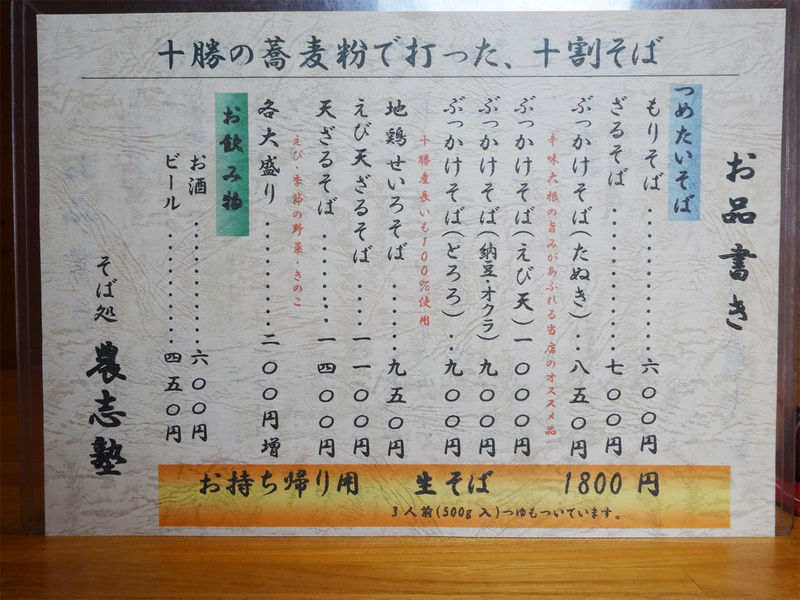 十勝の蕎麦粉で打った、十割そば
お品書き
つめたいそば
もりそば‥‥‥‥‥‥六〇〇円
ざるそば‥‥‥‥‥‥七〇〇円
ぶっかけそば(たぬき)‥八五〇円
辛味大根の旨みがあふれる当店のオススメ品
ぶっかけそば(えび天)一〇〇〇円
ぶっかけそば(納豆・オクラ)九〇〇円
ぶっかけそば(とろろ)‥九〇〇円
十勝産長いも100%使用
地鶏せいろそば‥‥‥九五〇円
えび天ざるそば‥‥一一〇〇円
天ざるそば‥‥‥‥一四〇〇円
えび・季節の野菜・きのこ
各大盛り‥‥‥‥‥二〇〇円増
お飲み物
お酒‥‥‥‥‥‥六〇〇円
ビール‥‥‥‥‥‥四五〇円
そば処 農志塾
お持ち帰り用 生そば 1800円
3人前(500g入)つゆもついています。